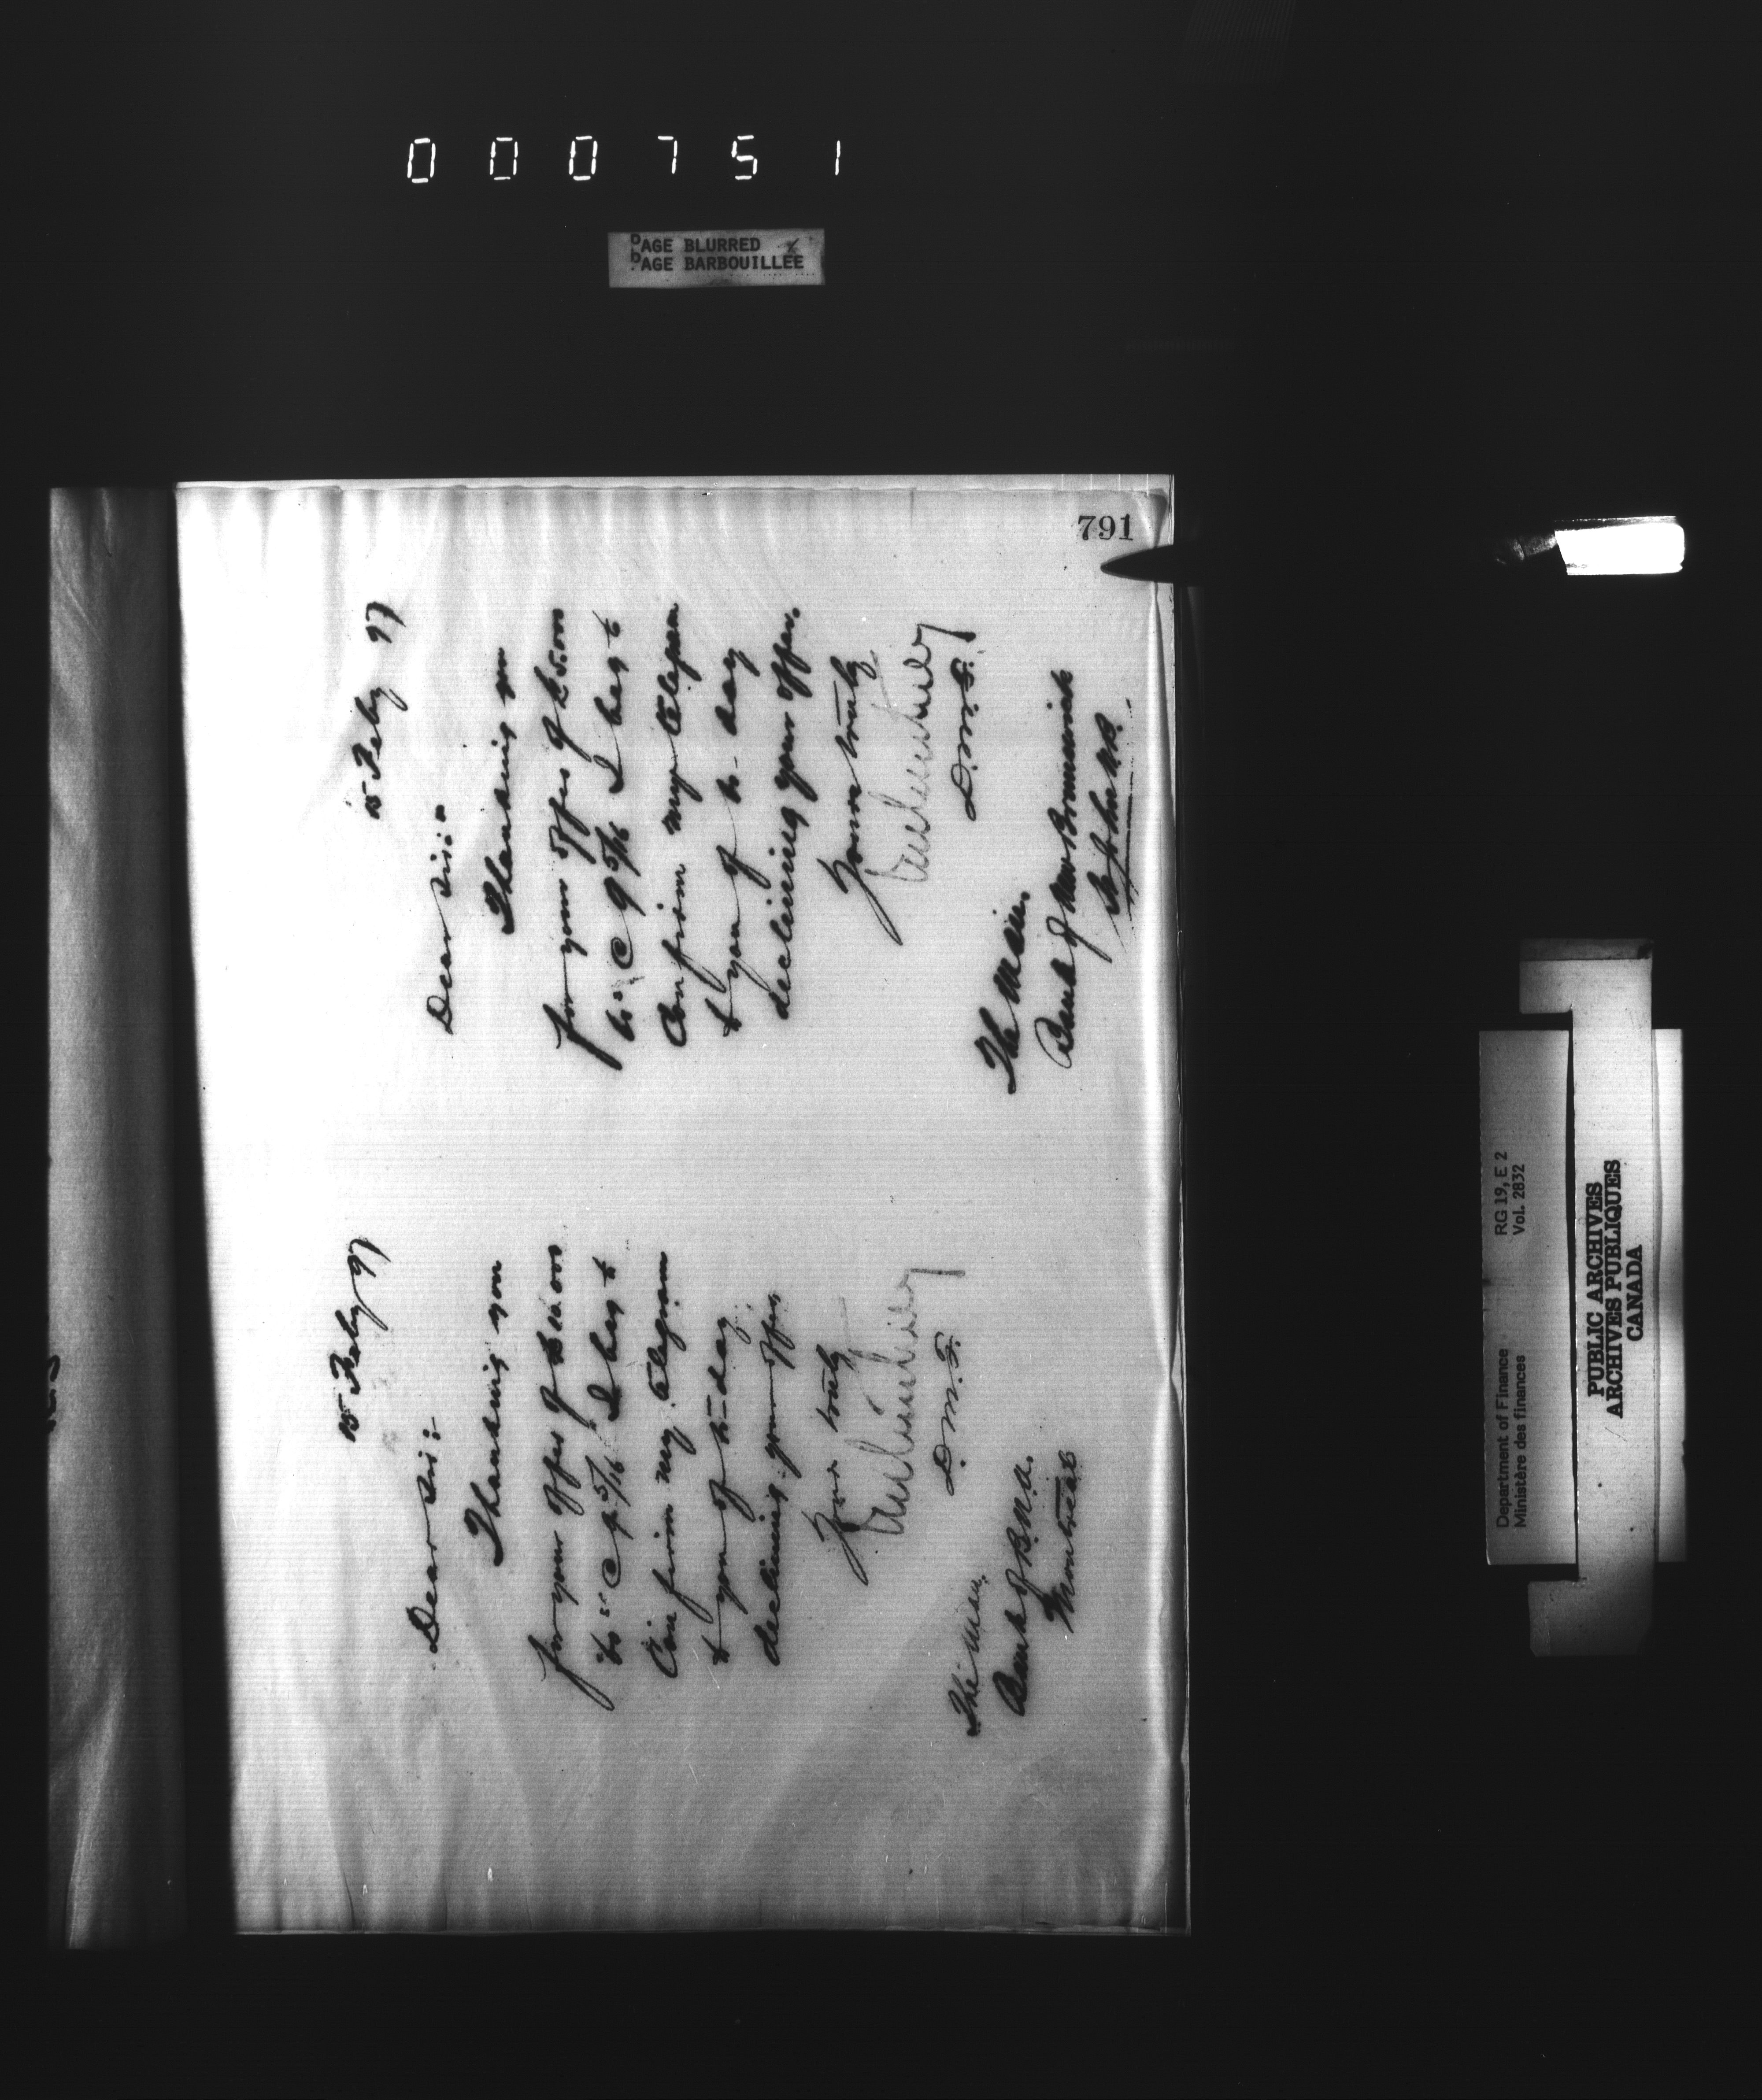 000751
PAGE BLURRED
PAGE BARBOUILLÉE
791
15 Feby 97
Dear Sir:
Thanking you
for your offer of £10.000
@ 9 5/16 I beg to
Confirm my telegram
to you of to-day
declining your offer.
Yours truly
D.M.F.
The Man.
Bank of B.N.A.
Montreal
15 Feby 97
Dear Sir:-
Thanking you
for your offer of £5.000
@ 9 5/16 I beg to
Confirm my telegram
to you of to-day
declining your offer.
Yours truly
D.M.F.
The Man.
Bank of New Brunswick
St John N.B.
Department of Finance RG 19, E 2
Ministère des finances Vol. 2832
PUBLIC ARCHIVES
ARCHIVES PUBLIQUES
CANADA